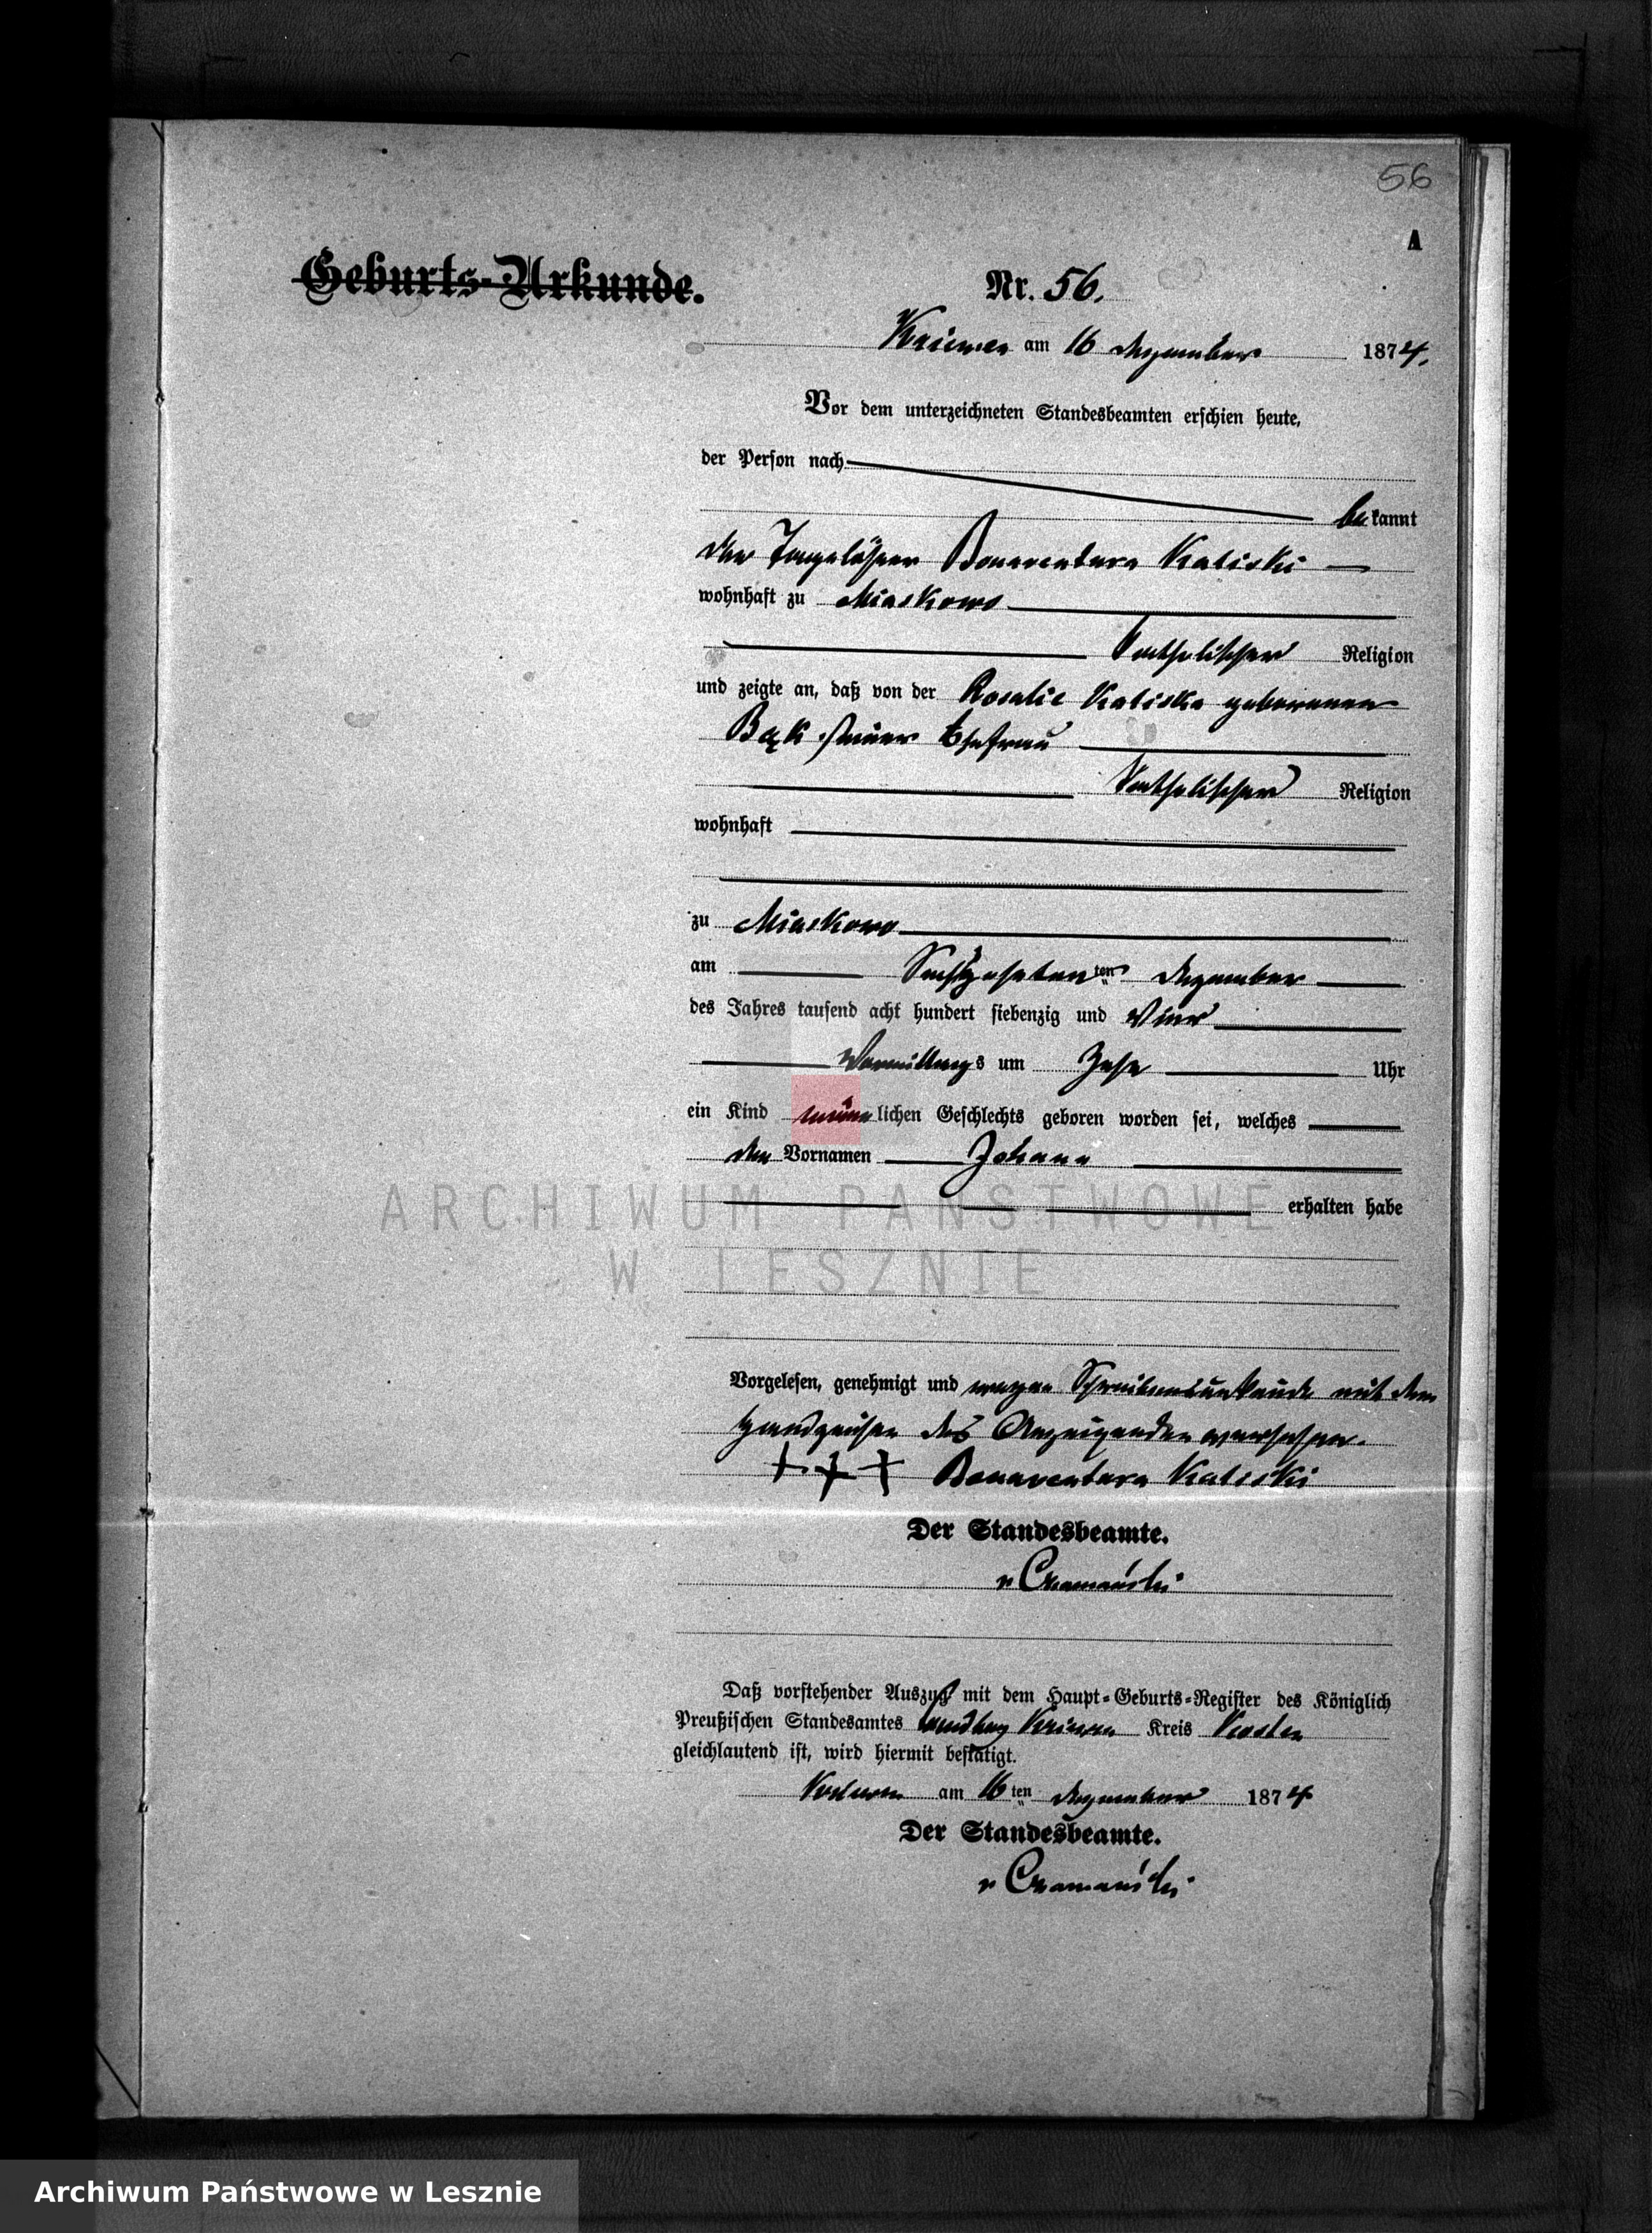 56
A
Geburts-Urkunde.
Nr. 56.
Kriewen am 16 Dezember 1874.
Vor dem unterzeichneten Standesbeamten erschien heute,
der Person nach
bekannt
der Tagelöhner Bonaventura Kaliski
wohnhaft zu Miaskowo
katholischer Religion
und zeigte an, daß von der Rosalie Kaliska geborenen
Bąk seiner Ehefrau
katholischer Religion
wohnhaft
zu Miaskowo
am Sechszehnten ten Dezember
des Jahres tausend acht hundert siebenzig und Vier
Vormittags um Zehn Uhr
ein Kind männlichen Geschlechts geboren worden sei, welches
den Vornamen Johann
erhalten habe
ARCHIWUM PAŃSTWOWE
W LESZNIE
Vorgelesen, genehmigt und wegen Schreibensunkunde mit dem
Handzeichen des Anzeigenden versehen.
+++ Bonaventura Kaliski
Der Standesbeamte.
v
Daß vorstehender Auszug mit dem Haupt-Geburts-Register des Königlich
Preußischen Standesamtes Kriewen Kreis Kosten
gleichlautend ist, wird hiermit bestätigt.
am 16ten Dezember 1874
Der Standesbeamte.
v
Archiwum Państwowe w Lesznie